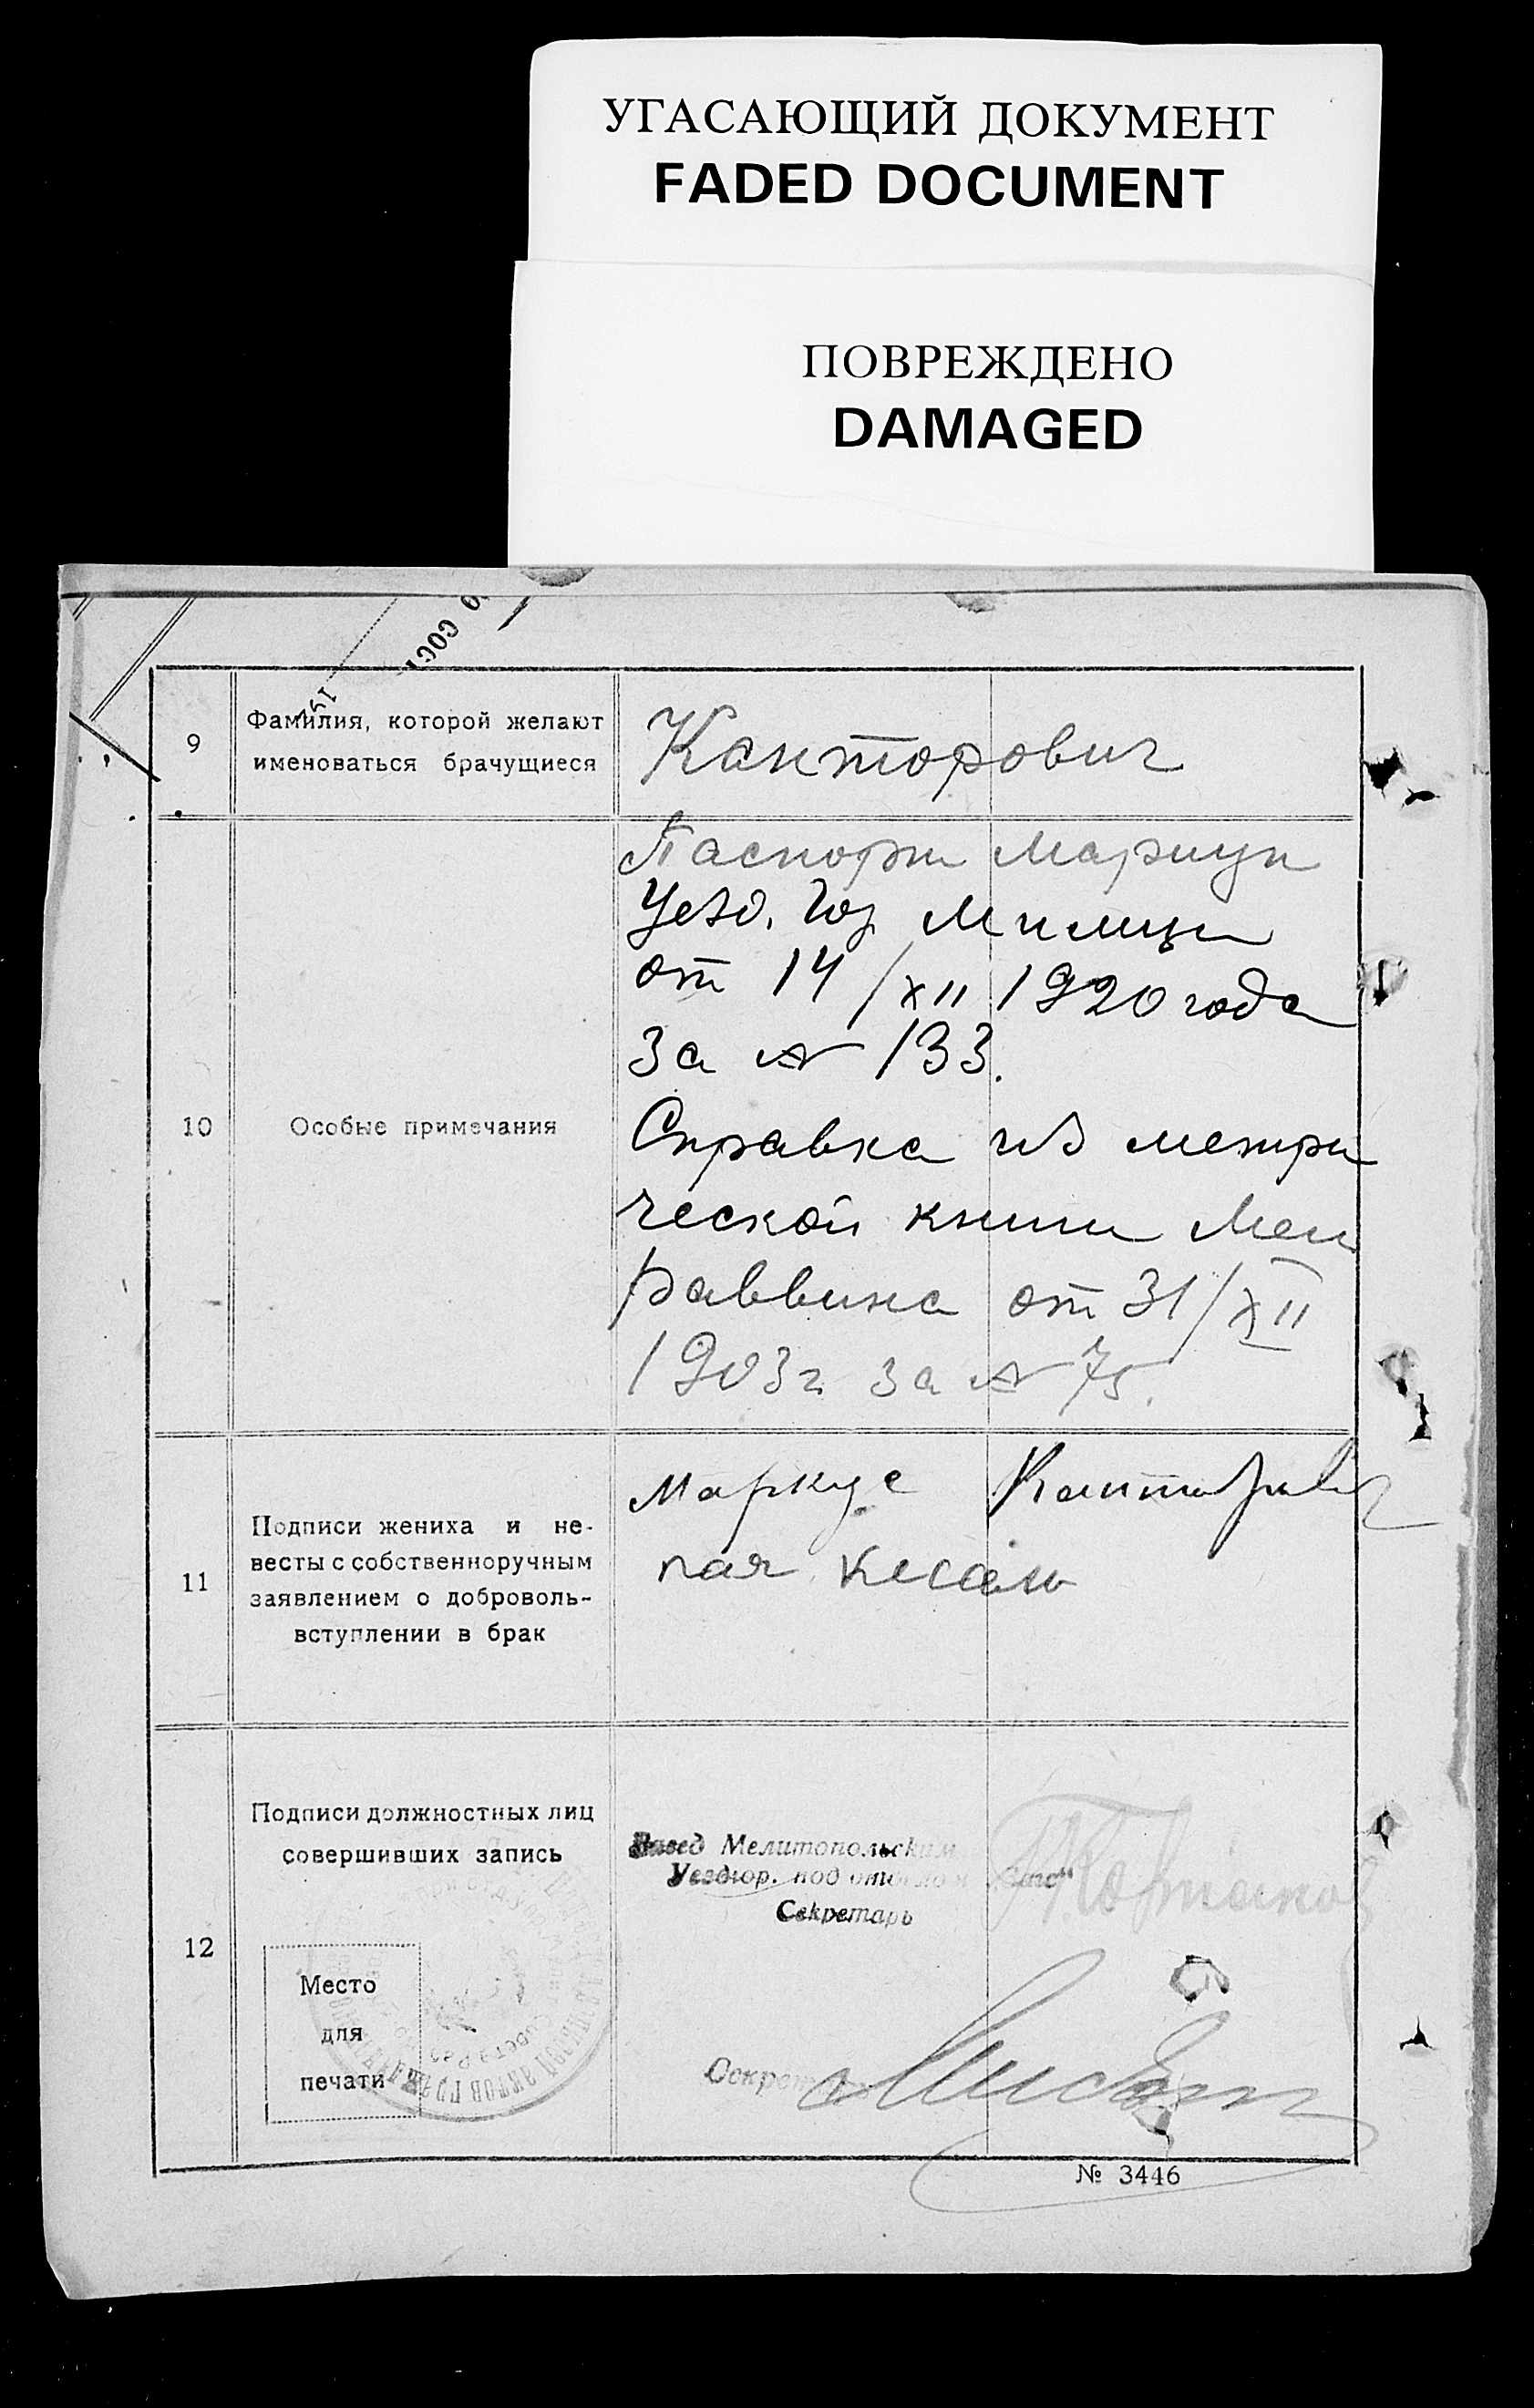 УГАСАЮЩИЙ ДОКУМЕНТ
FADED DOCUMENT
ПОВРЕЖДЕНО
DAMAGED
9
Фамилия, которой желают
именоваться брачущиеся
Канторович
10
Особые примечания
Паспорт Мариуп
Уезд. Гор Милиции
от 14/XII 1920 года
за № 133.
Справка из метри
ческой книги Мел
раввина от 31/XII
1903 г за № 75.
11
Подписи жениха и не-
весты с собственноручным
заявлением о доброволь-
вступлении в брак
Маркус Канторович
12
Подписи должностных лиц
совершивших запись
Завед Мелитопольским
Уездгор. под
Секретарь
Место
для
печати
Секрет
№ 3446